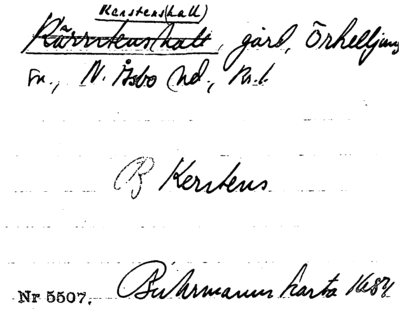 Karstens(hall)
Kärrstens(hall, gård, Örkelljunga
sn., N. Åsbo hd., Kr. l.
B Kerstens
Nr 5507. Buhrmanns karta 1684